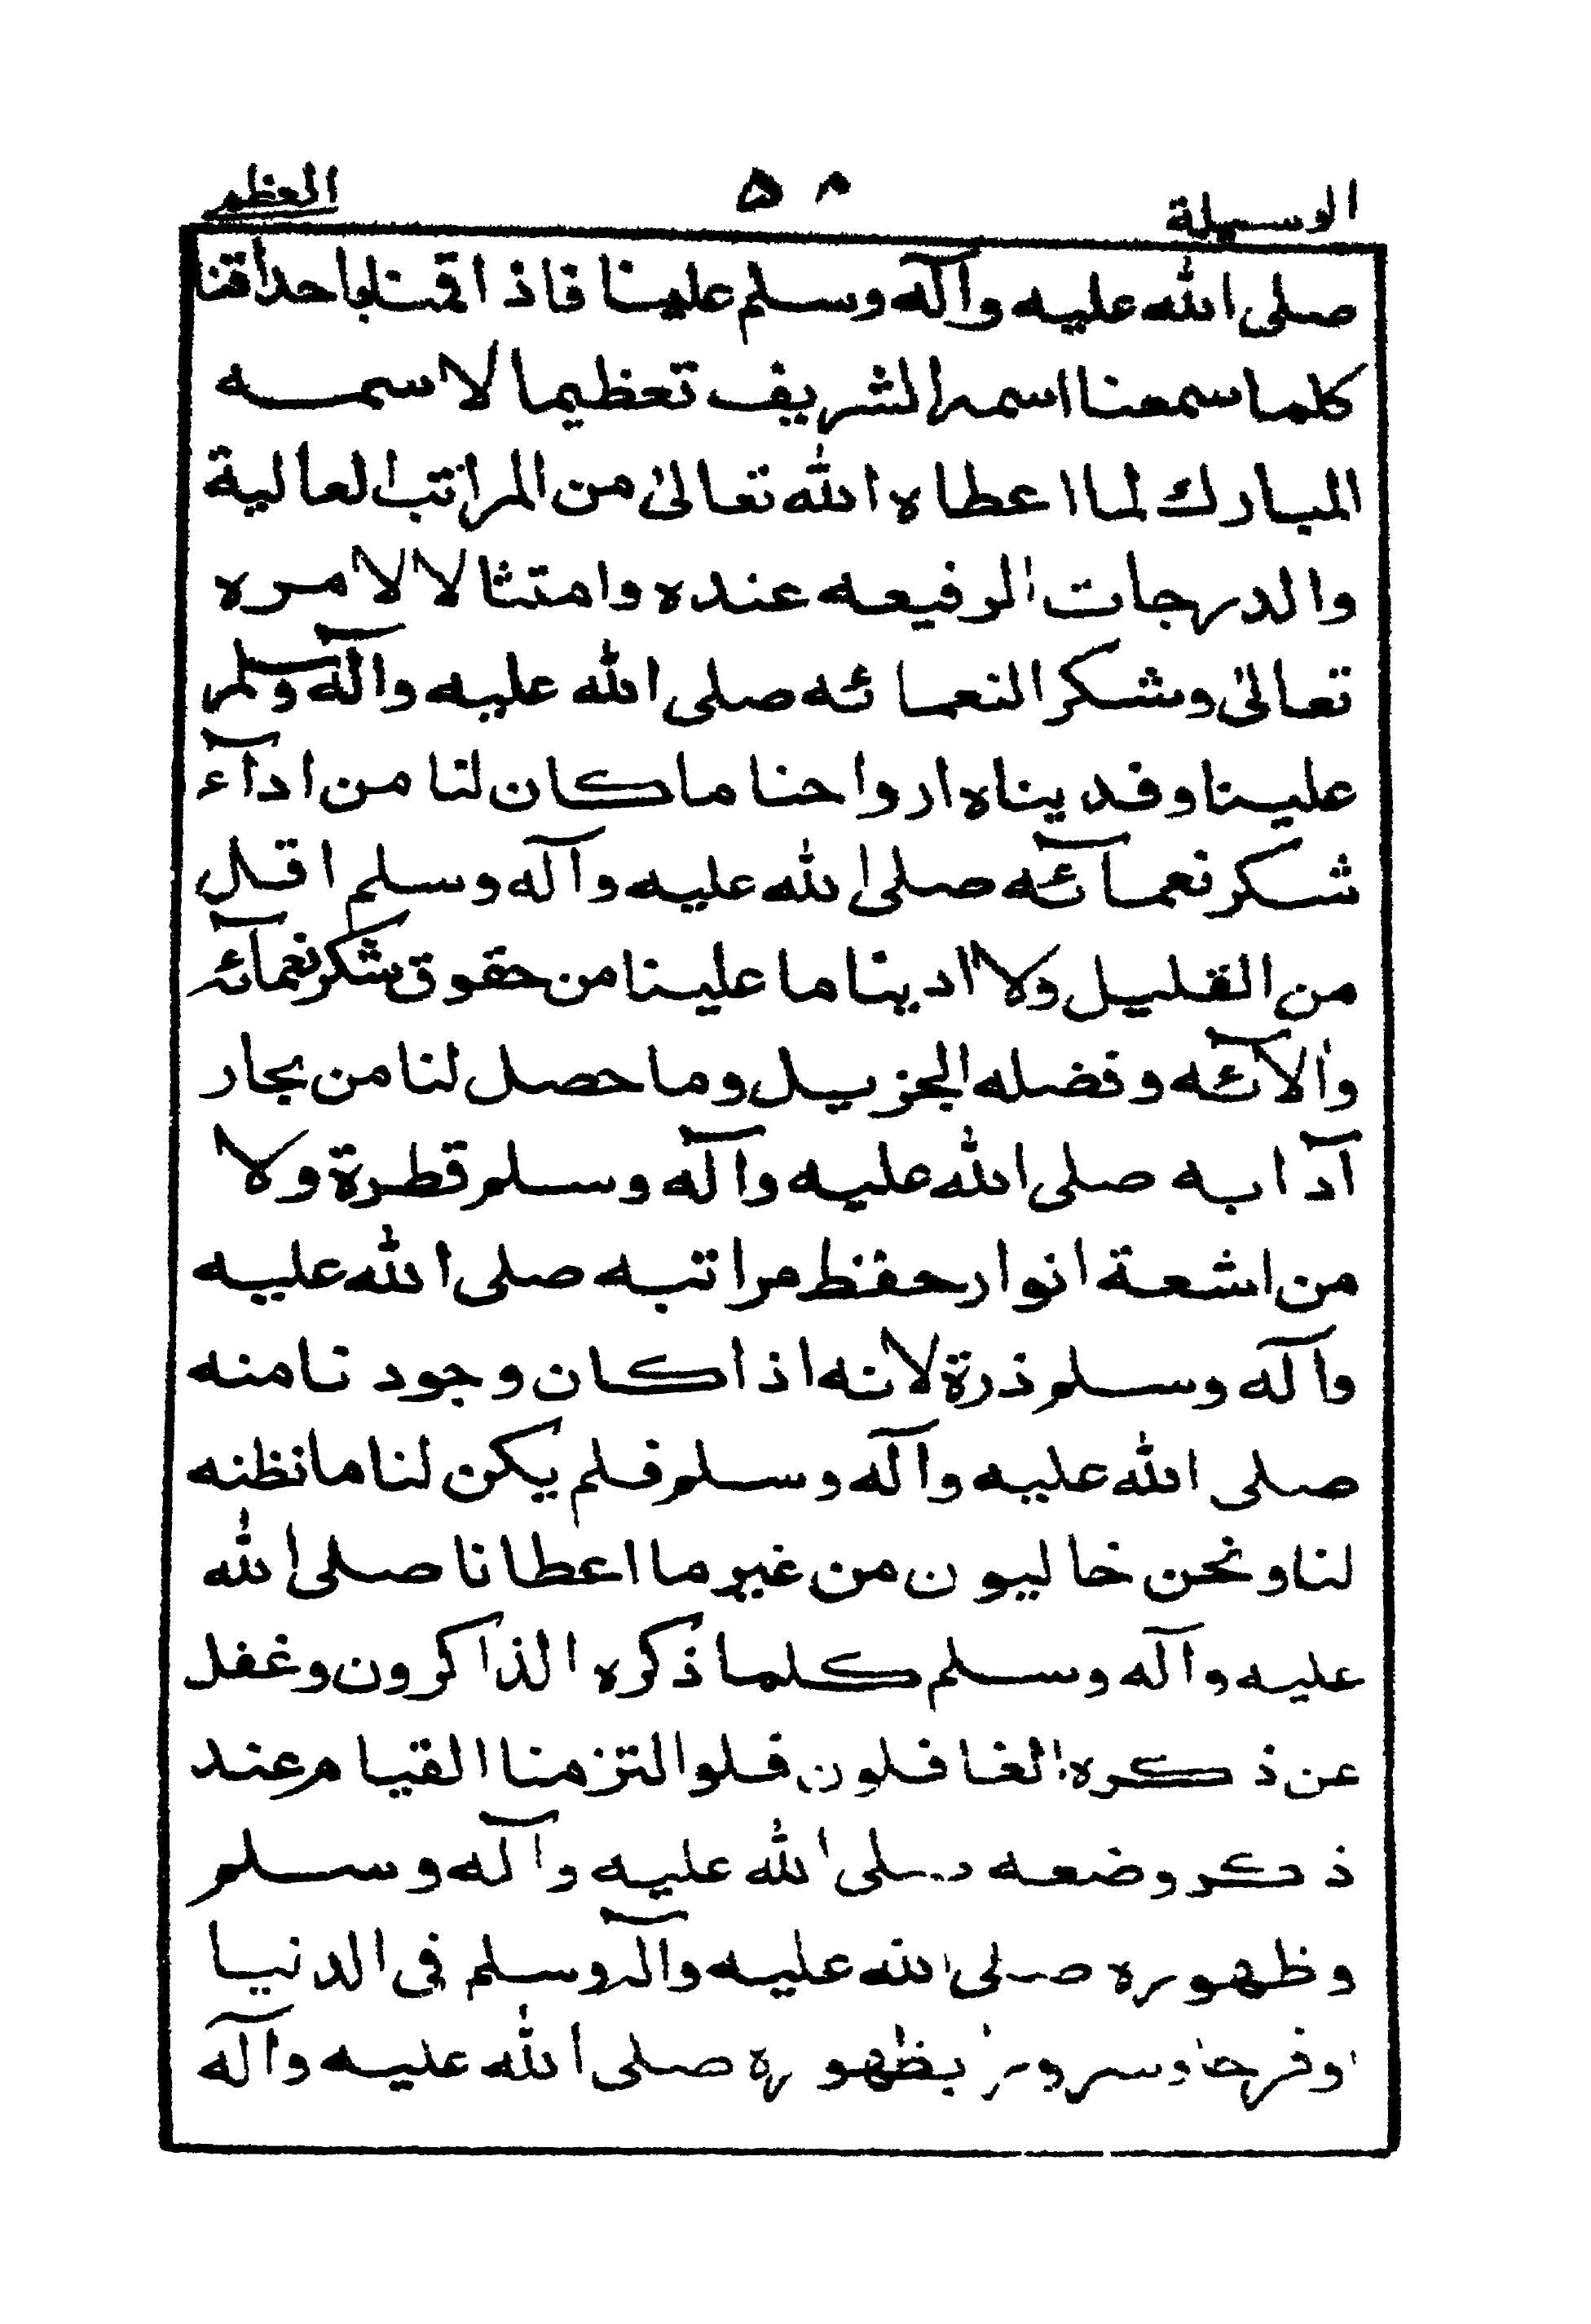 الوسيلة ٥٨ العظمى
صلى الله عليه وآله وسلم علينا فاذا قمنا باحداقنا
كلما سمعنا اسمه الشريف تعظيما لاسمه
المبارك لما اعطاه الله تعالىٰ من المراتب العالية
والدرجات الرفيعه عنده وامتثالا لامره
تعالىٰ وشكر النعمائه صلى الله عليه وآله وسلم
علينا وفديناه ارواحنا ما كان لنا من ادآء
شكر نعمآئه صلى الله عليه وآله وسلم اقل
من القليل ولا ادينا ما علينا من حقوق شكر نعمآئه
والآئه وفضله الجزيل وما حصل لنا من بحار
آدابه صلى الله عليه وآله وسلم قطرة ولا
من اشعة انوار حفظ مراتبه صلى الله عليه
وآله وسلم ذرة لانه اذا كان وجودنا منه
صلى الله عليه وآله وسلم فلم يكن لنا ما نظنه
لنا ونحن خاليون من غير ما اعطانا صلى الله
عليه وآله وسلم كلما ذكره الذاكرون وغفل
عن ذكره الغافلون فلو التزمنا القيام عند
ذكر وضعه صلى الله عليه وآله وسلم
وظهوره صلى الله عليه وآله وسلم فى الدنيا
اوفرحا وسرورا بظهوره صلى الله عليه وآله